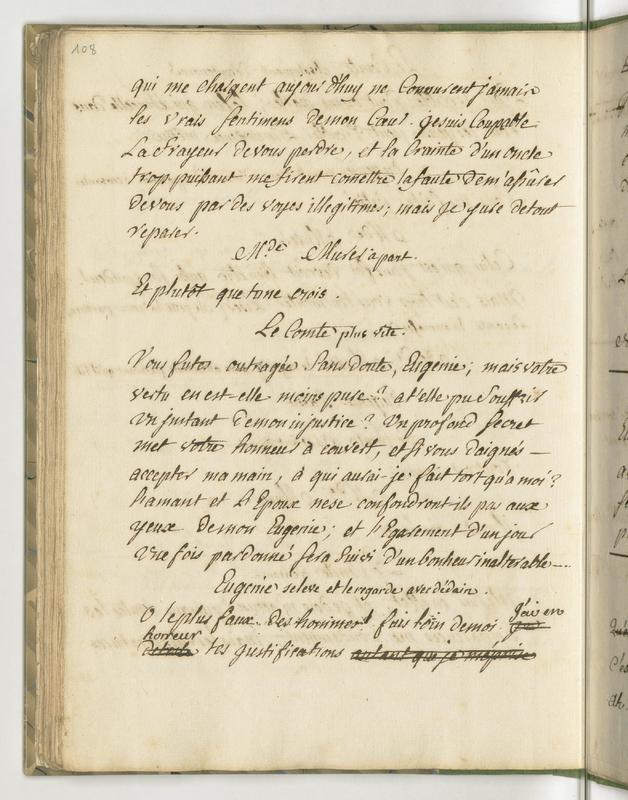 108
qui me chargent aujourd'huy ne Connurent jamais
les vrais sentimens de mon Cœur. je suis Coupable.
La frayeur de vous perdre, et la Crainte d'un oncle
trop puissant me firent comettre la faute de m'assûrer
de vous par des voyes illegitimes; mais je jure de tout
reparer.
M.de Murer à part.
Et plutôt que tu ne crois.
Le Comte plus vîte.
Vous futes outragée sans doute, Eugenie; mais votre
vertu en est-elle moins pure? a t'elle pu souffrir
un instant de mon injustice? Un profond secret
met votre honneur à couvert, et si vous daignés
accepter ma main, à qui aurai-je fait tort qu'à moi?
L'amant et L'Epoux ne se confondront ils pas aux
yeux de mon Eugenie; et l'Egarement d'un jour
une fois pardonné sera suivi d'un bonheur inalterable...
Eugenie se leve et le regarde avec dédain.
O le plus faux des hommes! fuis loin de moi. j'ai en
horreur
deteste tes justifications autant que je méprise